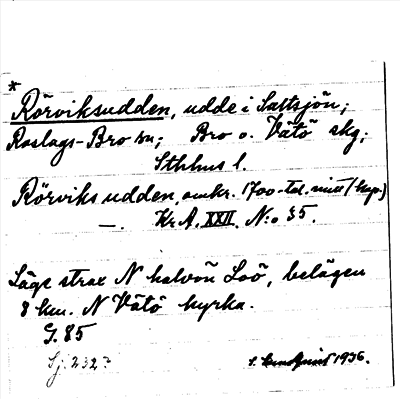 *
Rörviksudden, udde i Saltsjön;
Roslags-Bro sn; Bro o. Vätö skg;
Sthlms l.
Rörviksudden, omkr. 1700-tal. mitt (kop.)
—. Kr A. XXII. N:o 35.
Läge strax N halvön Loö, belägen
8 km. N Vätö kyrka.
G. 85
Sj. 232?
S. Lindqvist 1936.